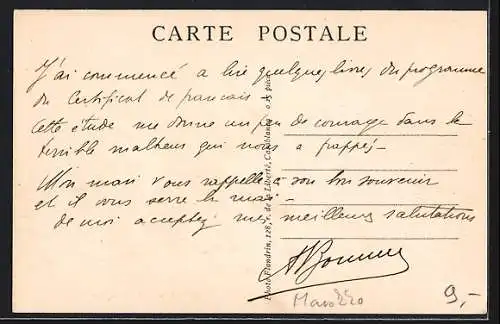 CARTE POSTALE
J'ai commencé a lire quelques livres du programme
du Certificat de francais
Cette étude me donne un peu de courage dans le
terrible malheur qui nous a frappés -
Mon mari vous rappelle à son bon souvenir
et il vous serre la main
de moi acceptez mes meilleures salutations
Photo Flandrin, 128, r. de la Liberté, Casablanca
9,-